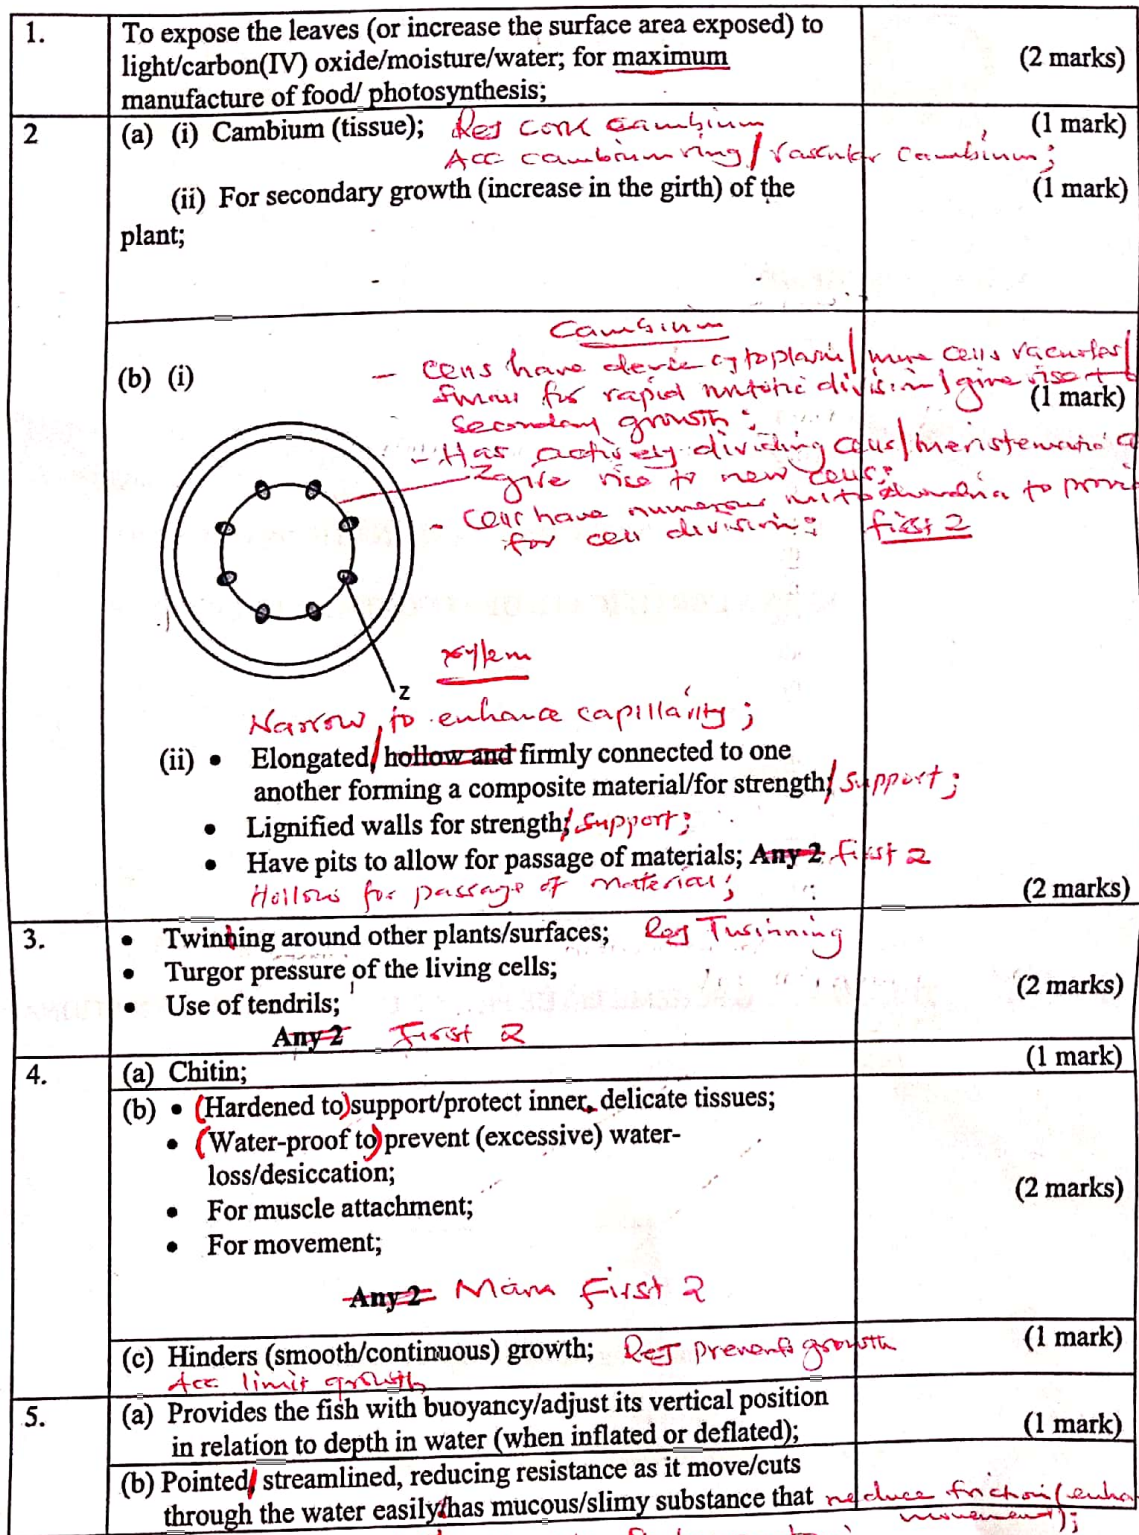 1.
To expose the leaves (or increase the surface area exposed) to
light/carbon(IV) oxide/moisture/water; for maximum
manufacture of food/ photosynthesis;
(2 marks)
2
(a) (i) Cambium (tissue); Rej cork cambium
(1 mark)
Acc cambium ring / vascular cambium;
(ii) For secondary growth (increase in the girth) of the
(1 mark)
plant;
Cambium
(b) (i)
- Cells have dense cytoplasm / more cells vacuoles /
for rapid mitotic division / give rise to
(1 mark)
secondary growth;
- Has actively dividing cells / meristematic
give rise to new cells;
- Cells have numerous mitochondria to provi
for cell division; first 2
Z
xylem
Z
Narrow, to enhance capillarity;
(ii) • Elongated / hollow and firmly connected to one
another forming a composite material/for strength; / support;
• Lignified walls for strength; / support;
• Have pits to allow for passage of materials; Any 2 first 2
Hollow for passage of material;
(2 marks)
3.
• Twinning around other plants/surfaces; Rej Twinning
• Turgor pressure of the living cells;
(2 marks)
• Use of tendrils;
Any 2 First 2
4.
(a) Chitin;
(1 mark)
(b) • (Hardened to) support/protect inner, delicate tissues;
• (Water-proof to) prevent (excessive) water-
loss/desiccation;
(2 marks)
• For muscle attachment;
• For movement;
Any 2 Mark first 2
(c) Hinders (smooth/continuous) growth; Rej prevents growth
(1 mark)
Acc limit growth
5.
(a) Provides the fish with buoyancy/adjust its vertical position
in relation to depth in water (when inflated or deflated);
(1 mark)
(b) Pointed / streamlined, reducing resistance as it move/cuts
through the water easily/has mucous/slimy substance that reduce friction (enha
movement);